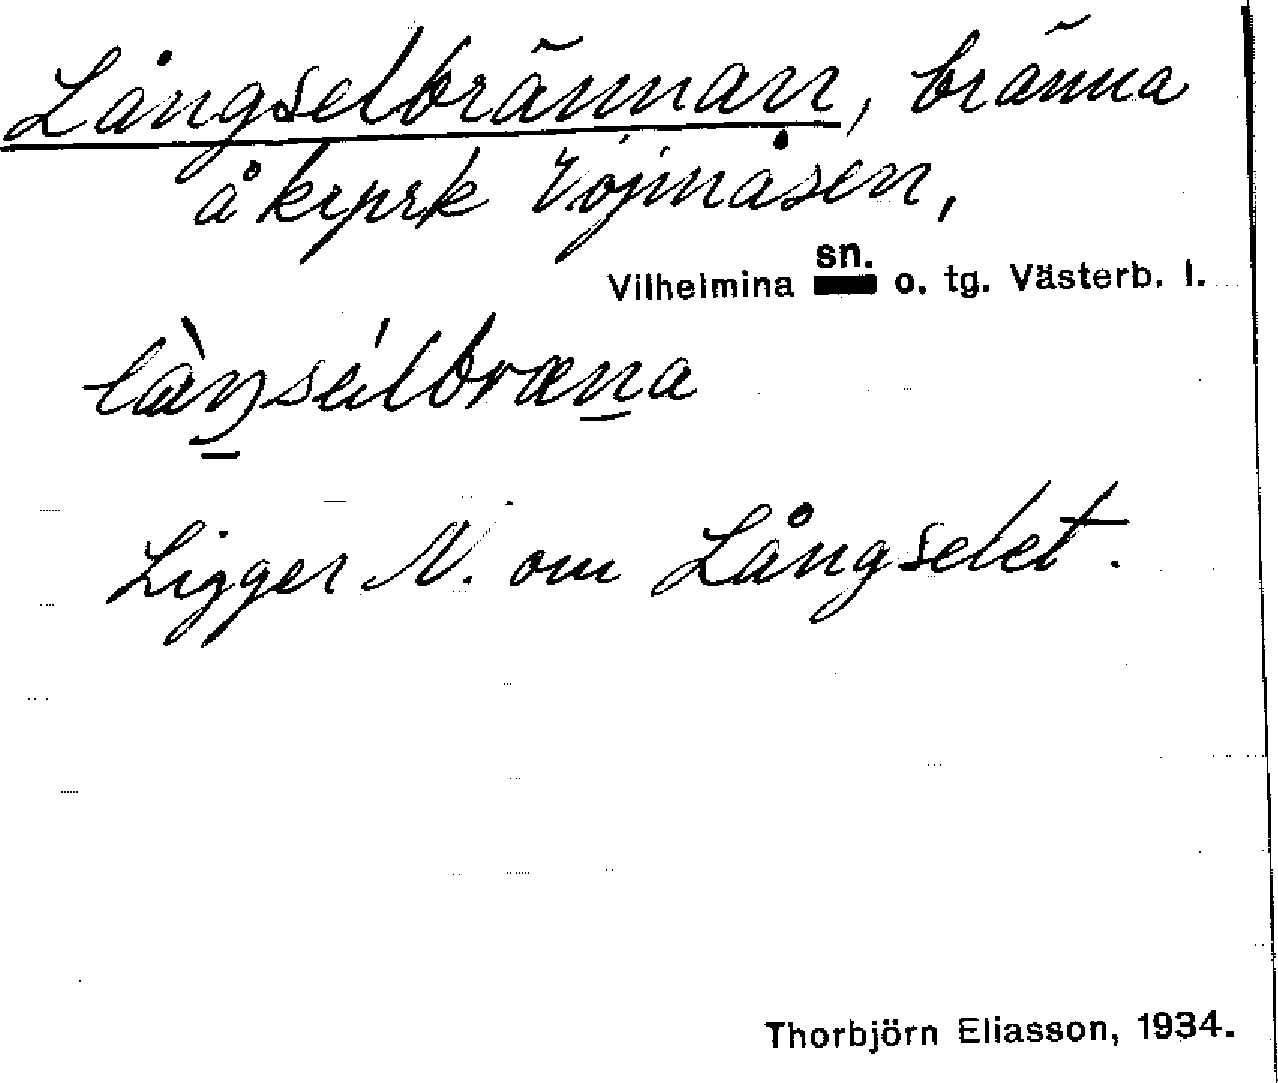 Långselbrännan, bränna
å krprk Vojmåsen,
sn.
Vilhelmina o. tg. Västerb. l.
Ligger N. om Långselet.
Thorbjörn Eliasson, 1934.